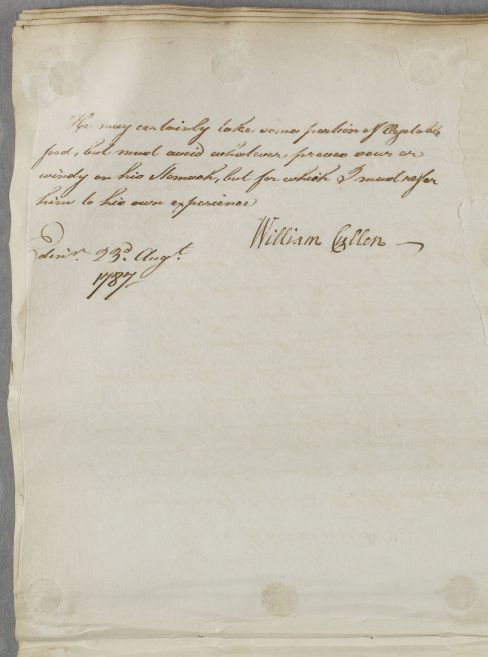 He may certainly take some portion of Vegetable
food, but must avoid whatever proves sour or
windy on his Stomach, but for which I must refer
him to his own experience
William Cullen
Edinr. 23d. Augt.
1787